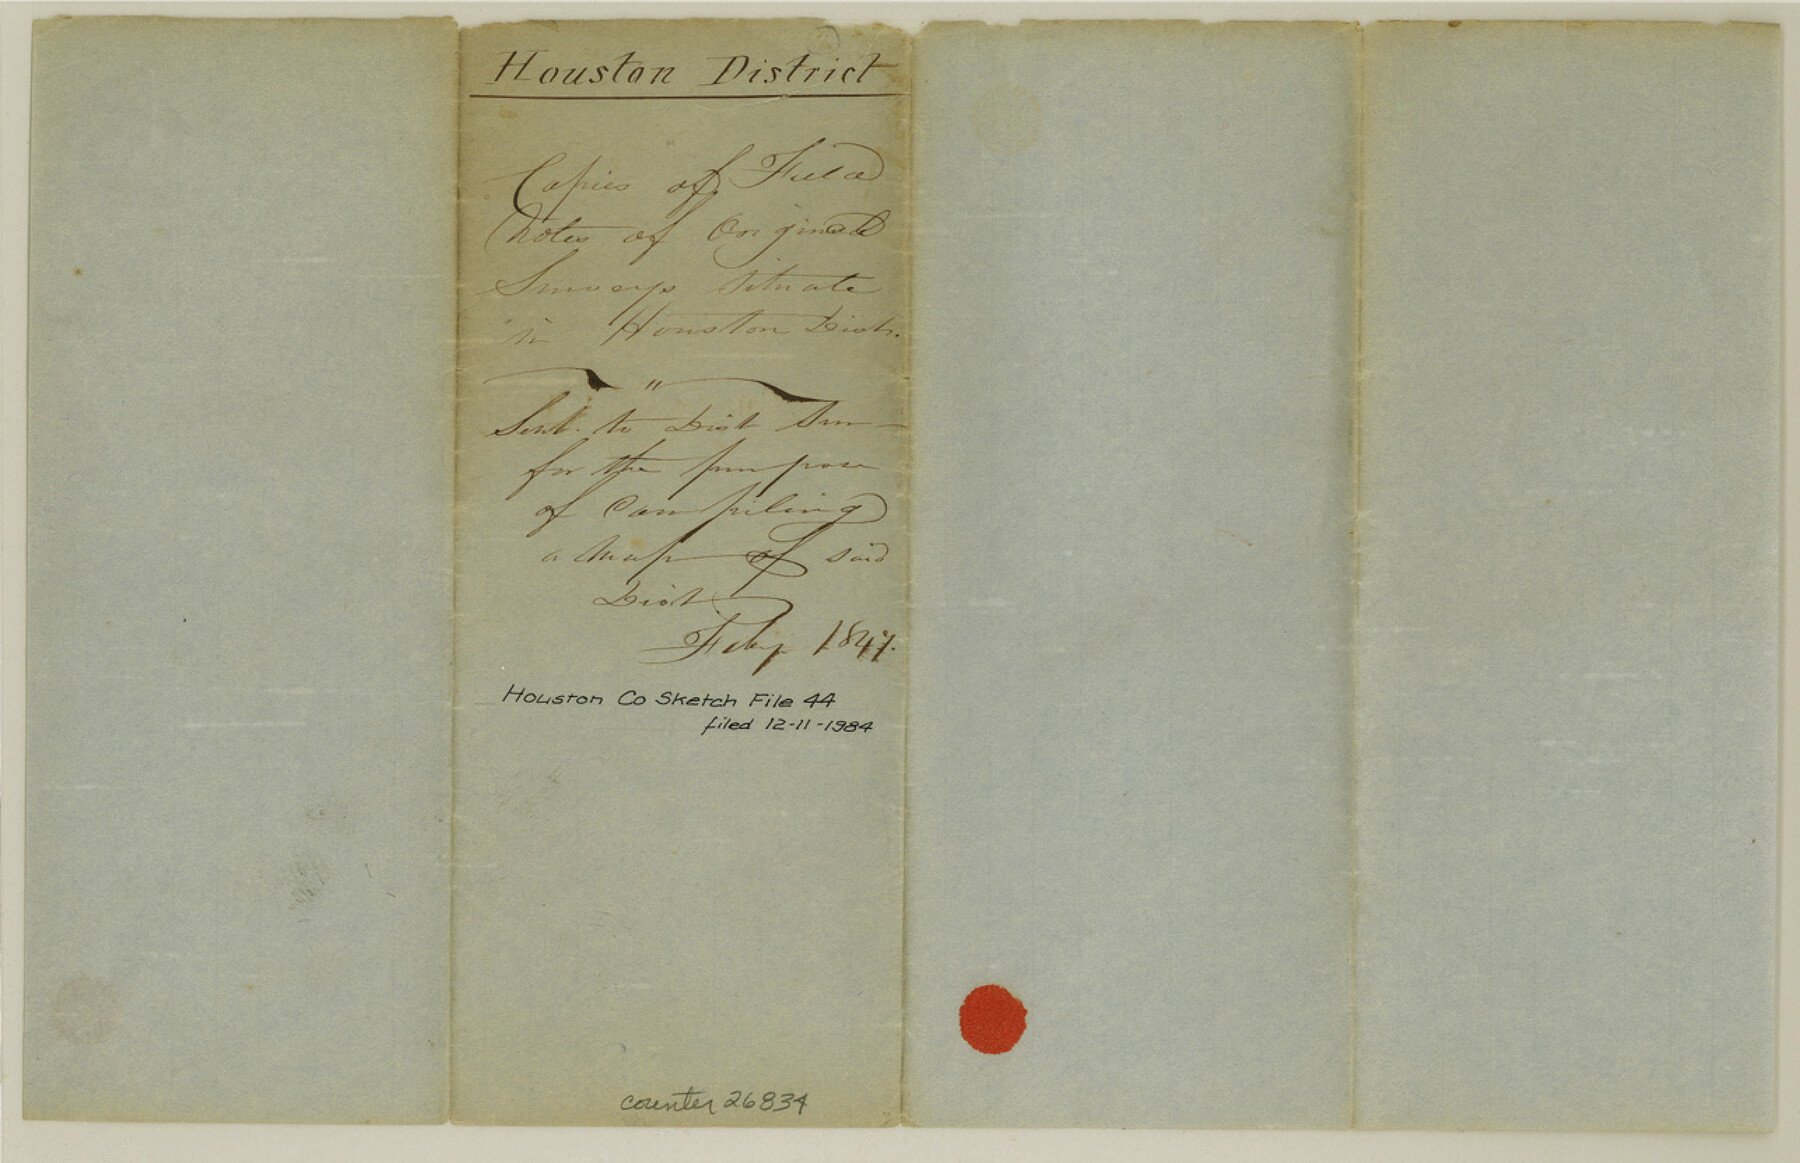 Houston District
Copies of Field
Notes of Original
Surveys situate
in Houston Dist.
"
Sent to Dist Sur
for the purpose
of Compiling
a Map of said
Dist
Feby 1847.
Houston Co Sketch File 44
filed 12-11-1984
counter 26834